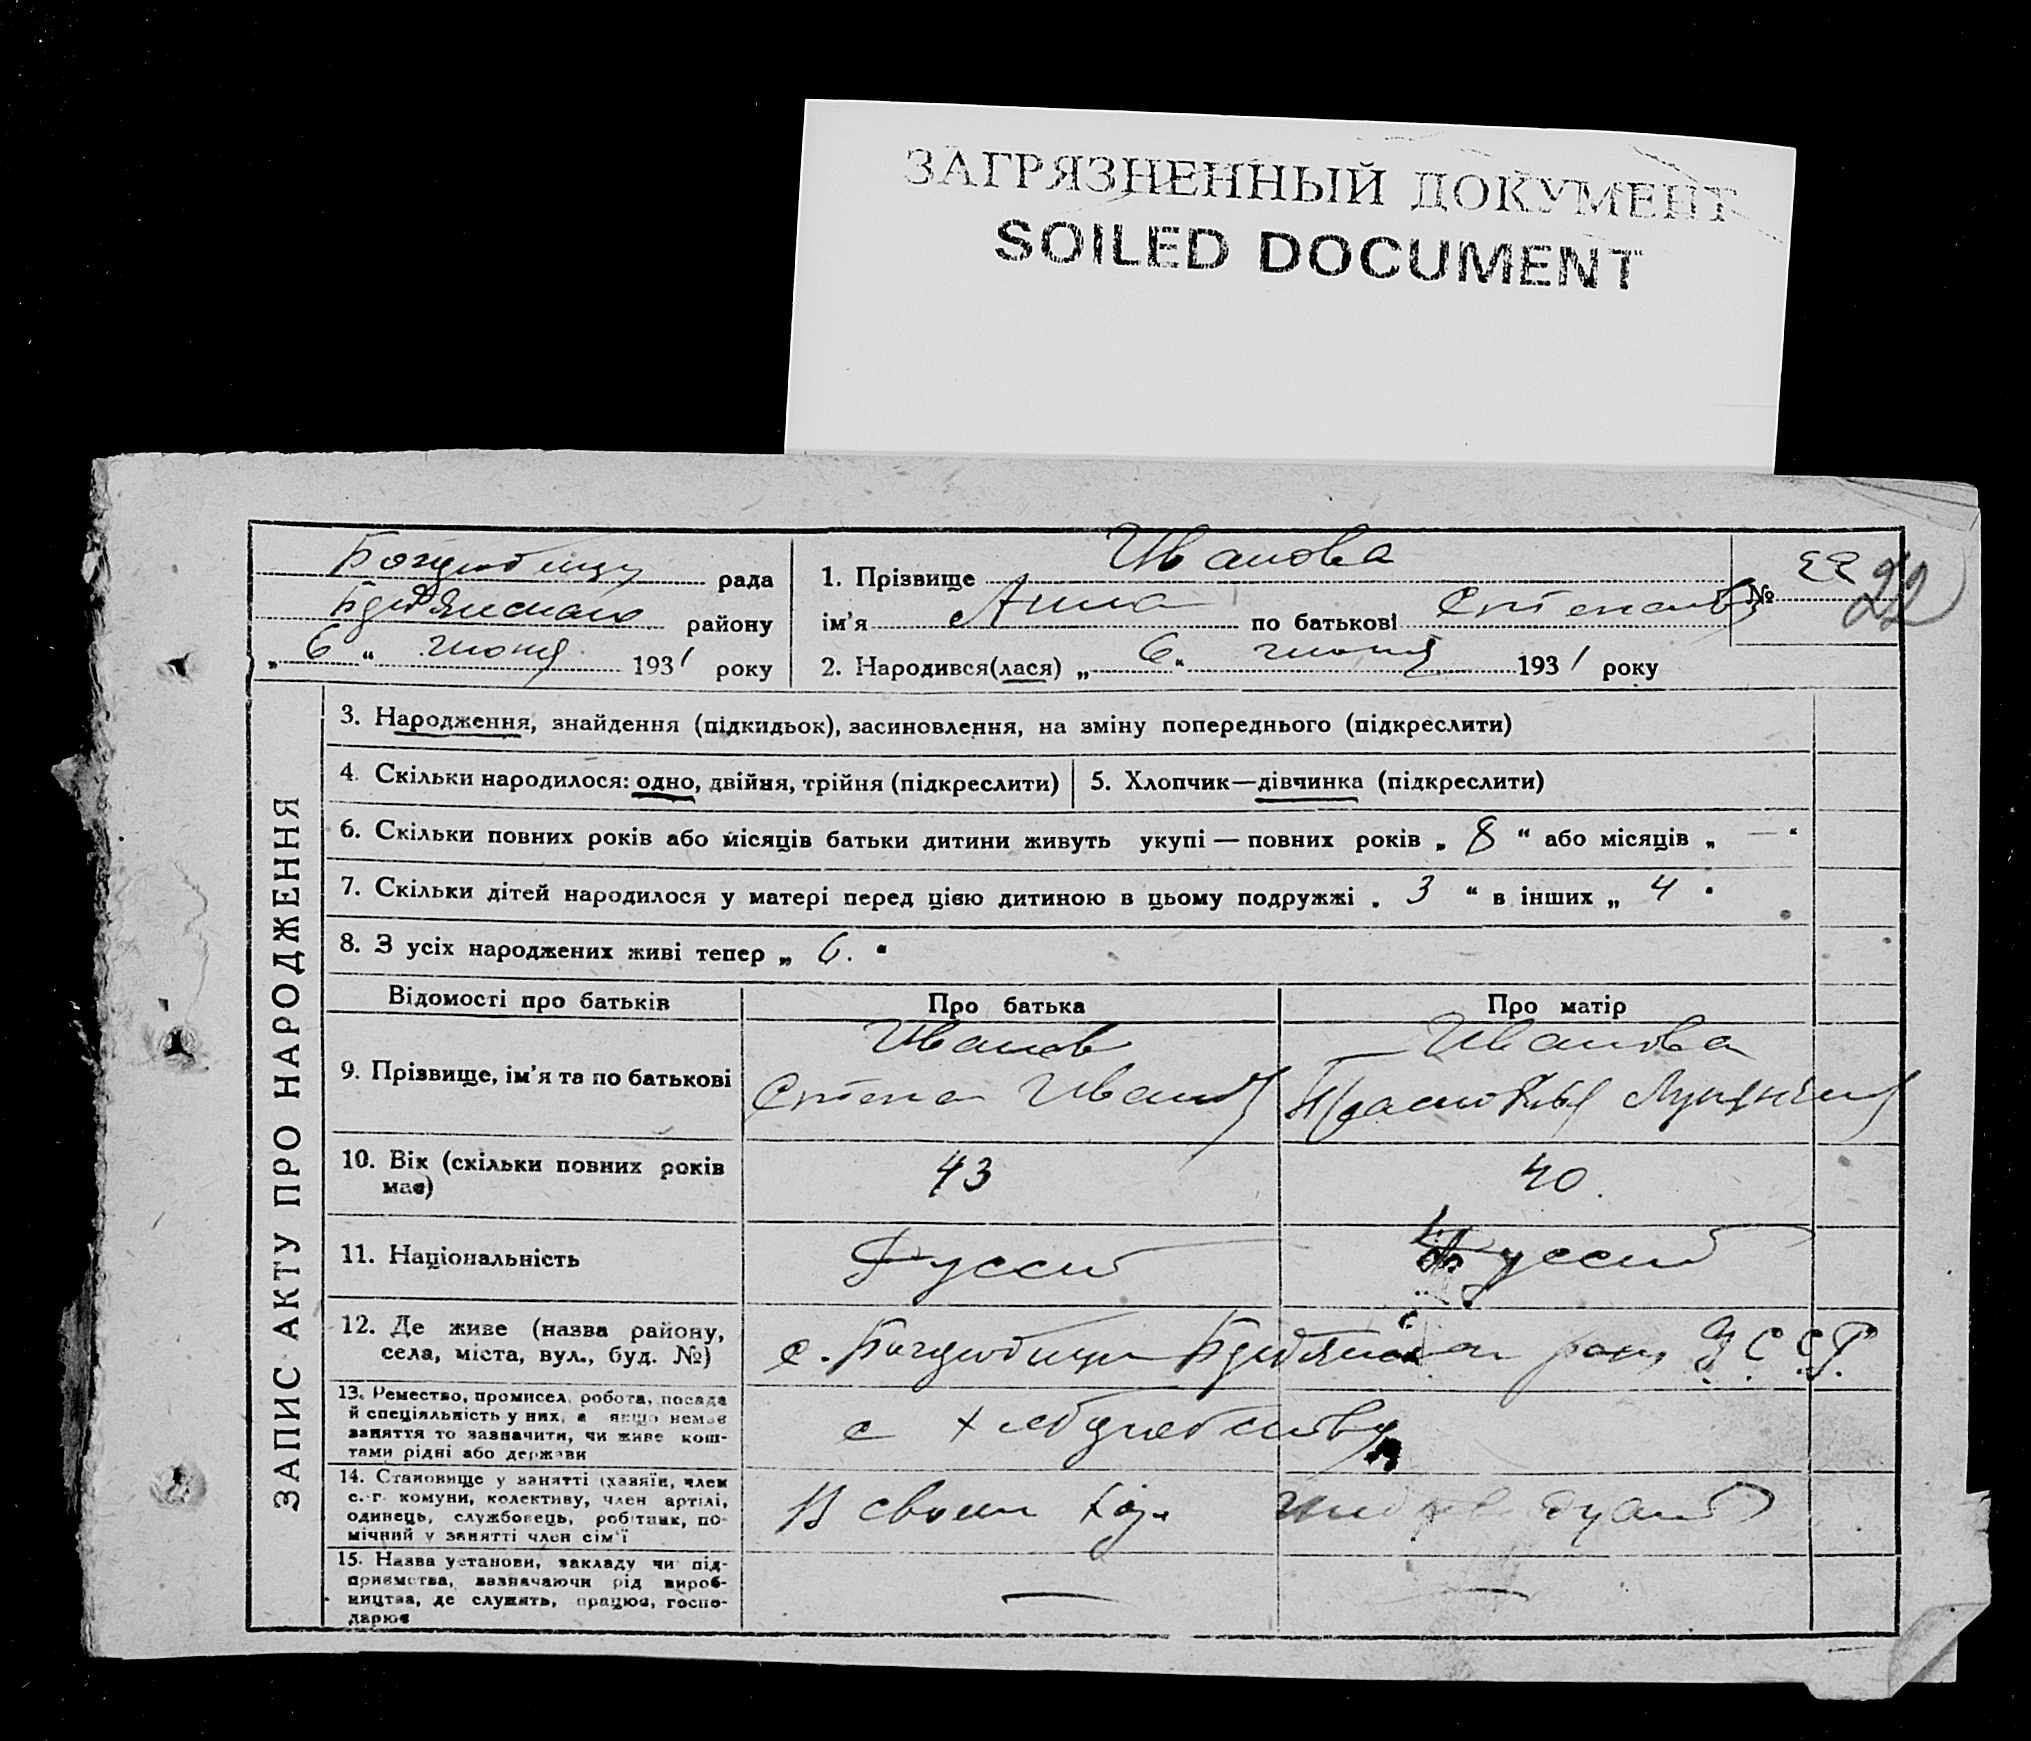 ЗАГРЯЗНЕННЫЙ ДОКУМЕНТ
SOILED DOCUMENT
рада
району
„ 6 “ июня 1931 року
1. Прізвище Иванова
ім'я Анна по батькові
2. Народився(лася) „ 6 “ июня 1931 року
№ 22
22
ЗАПИС АКТУ ПРО НАРОДЖЕННЯ
3. Народження, знайдення (підкидьок), засиновлення, на зміну попереднього (підкреслити)
4. Скільки народилося: одно, двійня, трійня (підкреслити)
5. Хлопчик—дівчинка (підкреслити)
6. Скільки повних років або місяців батьки дитини живуть укупі — повних років „ 8 “ або місяців „ — “
7. Скільки дітей народилося у матері перед цією дитиною в цьому подружжі „ 3 “ в інших „ 4 “
8. З усіх народжених живі тепер „ 6. “
Відомості про батьків
Про батька
Про матір
9. Прізвище, ім'я та по батькові
Иванов
Иванова
10. Вік (скільки повних років
має)
43
40.
11. Національність
12. Де живе (назва району,
села, міста, вул., буд. №)
с. У.С.С.Р.
13. Ремество, промисел, робота, посада
й спеціяльність у них, а якщо немає
заняття то зазначити, чи живе кош-
тами рідні або держави
14. Становище у занятті (хазяїн, член
с.-г. комуни, колективу, член артілі,
одинець, службовець, робітник, по-
мічний у занятті член сім'ї
В своем хоз.
15. Назва установи, закладу чи під-
приємства, зазначаючи рід вироб-
ництва, де служать, працює, госпо-
дарює
—
—